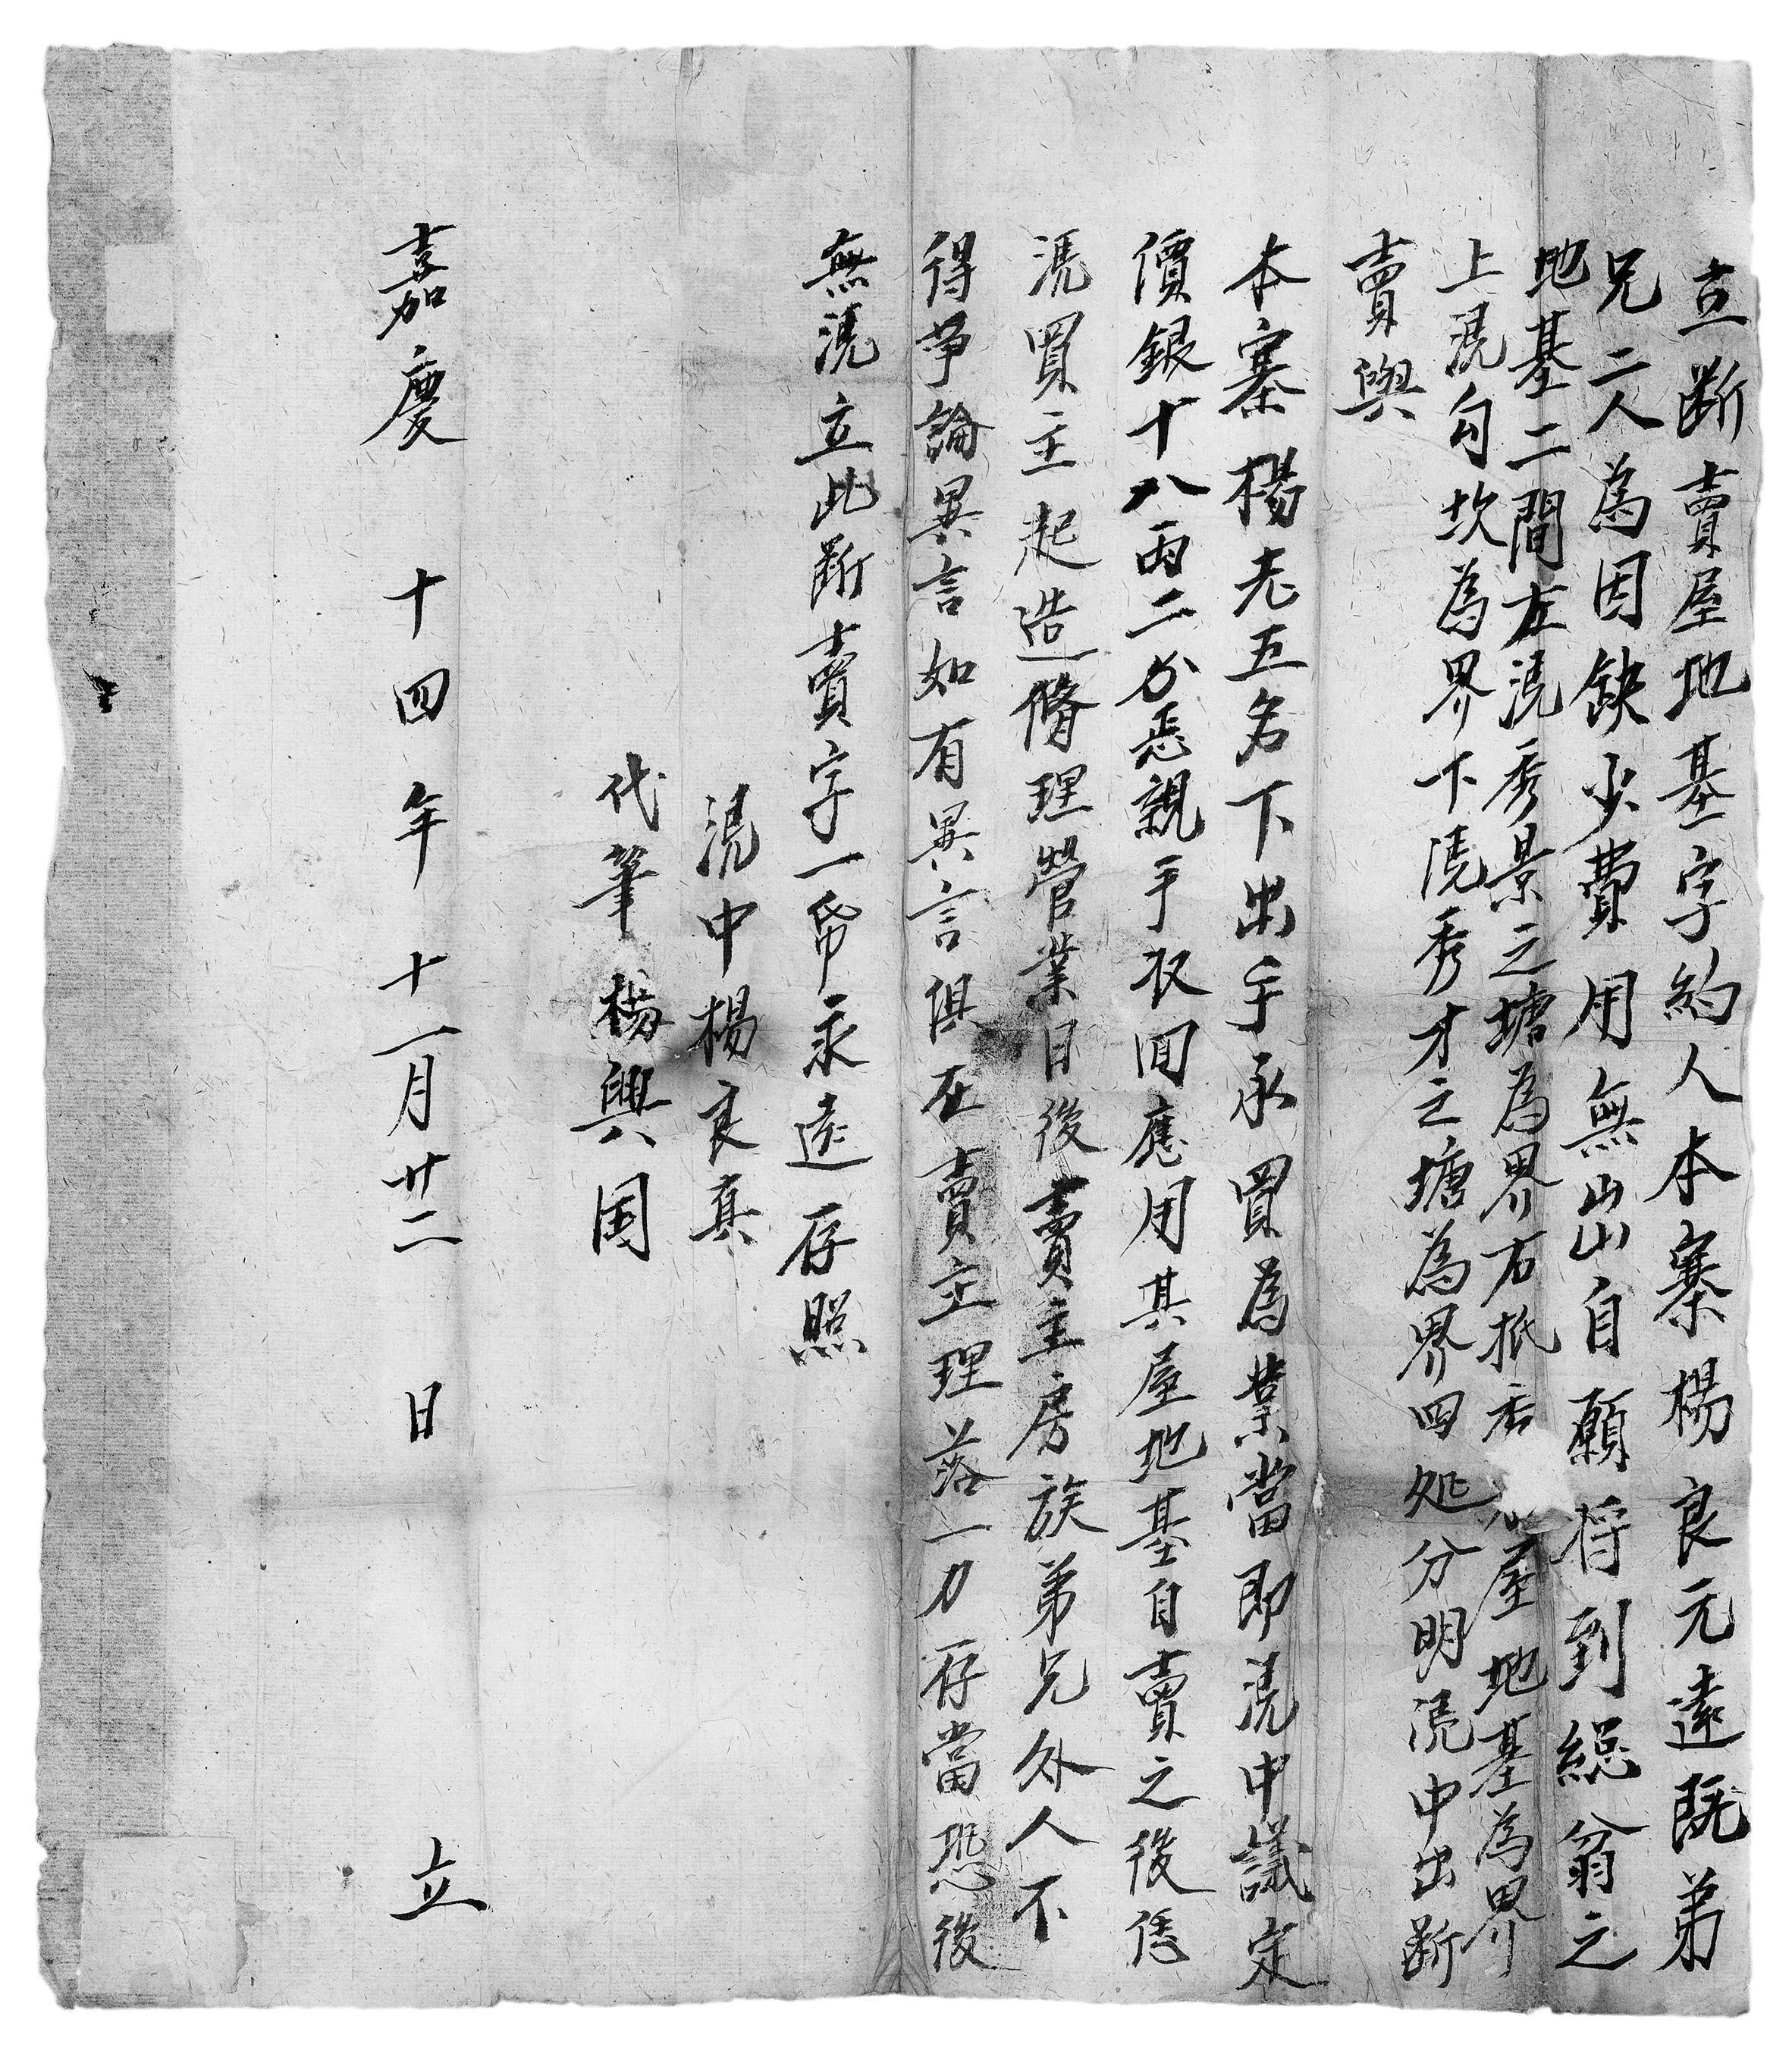 立断賣屋地基字約人本寨楊良元遠既弟
兄二人為因缺少費用無出自願将到総翁之
地基二間左淸秀景之塘為界右抵香屋地基為界
上淸勾坎為界下淸秀才之塘為界四処分明淸中出断
賣與
本寨楊老五名下出手承買為業當即淸中議定
價銀十八両二分悉親手收囬應用其屋地基自賣之後任
淸買主起造脩理營業日後賣主房族弟兄外人不
得爭論異言如有異言俱在賣主理落一力存當恐後
無淸立此断賣字一帋永遠存照
淸中楊良真
代筆楊興国
嘉慶十四年十一月廿二日立